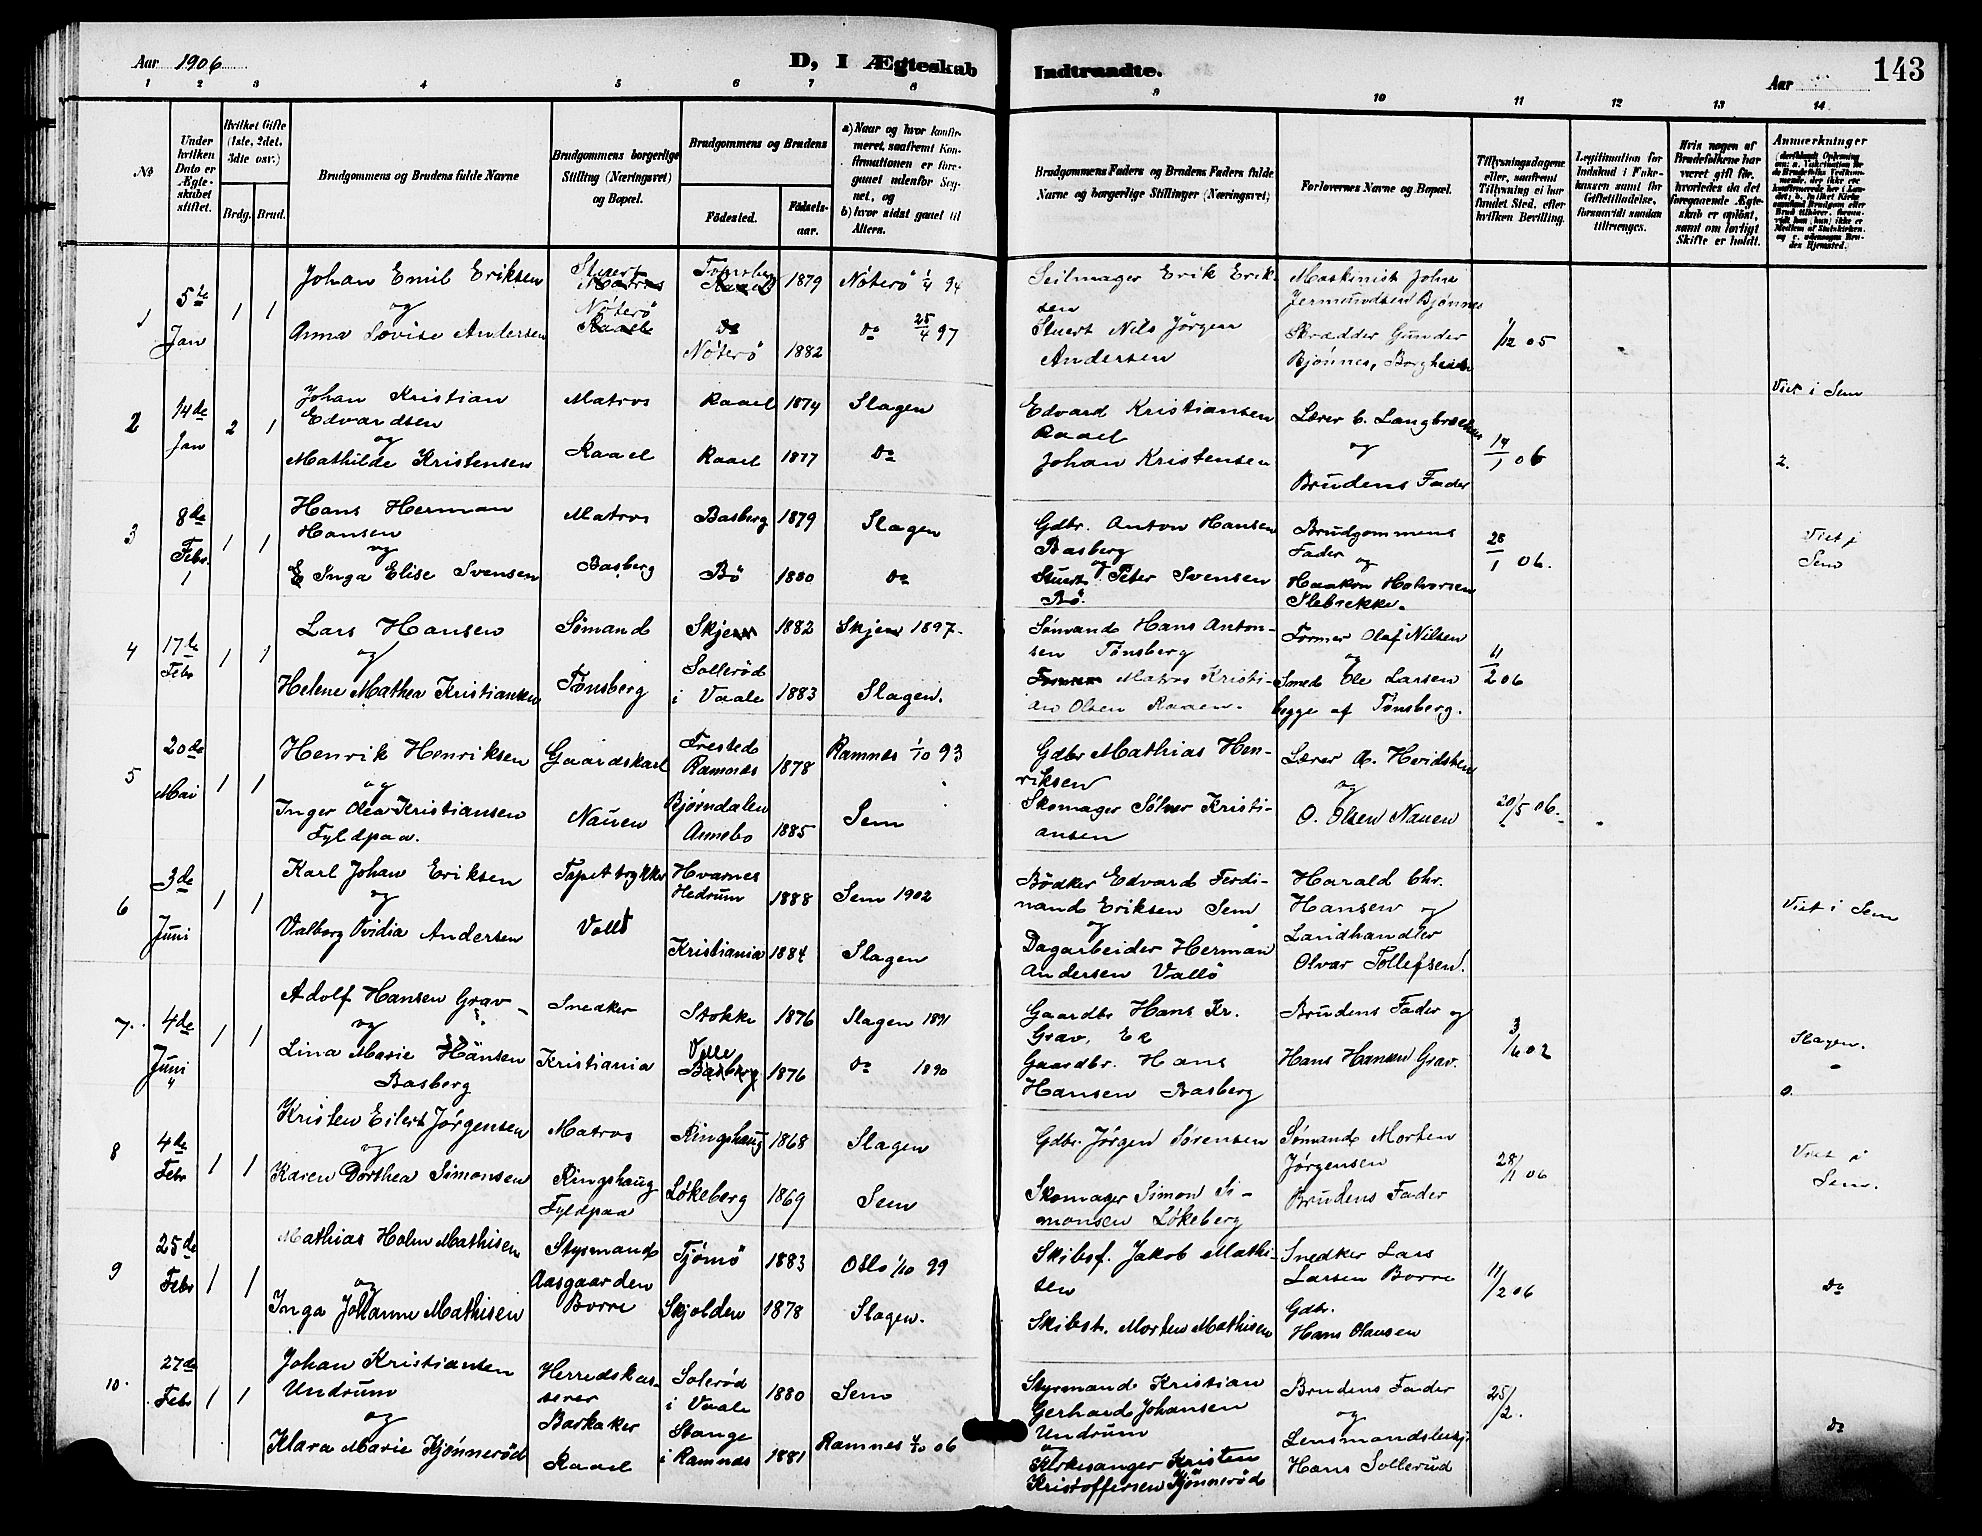 Aar 1906
D, I Ægteskab Indtraadte.
Aar
143
1 2 3 4 5 6 7 8 9 10 11 12 13 14
№
Under hvilken Dato er Ægteskabet stiftet.
Hvilket Gifte (1ste, 2det, 3dte osv.)
Brdg. Brud.
Brudgommens og Brudens fulde Navne
Brudgommens borgerlige Stilling (Næringsvei) og Bopæl.
Brudgommens og Brudens
Fødested.
Fødselsaar.
a) Naar og hvor konfirmeret, saafremt Konfirmationen er foregaaet udenfor Sognet, og
b) hvor sidst gaaet til Alters.
Brudgommens Faders og Brudens Faders fulde Navne og borgerlige Stillinger (Næringsvei)
Forlovernes Navne og Bopæl.
Tillysningsdagene eller, saafremt Tillysning ei har fundet Sted, efter hvilken Bevilling.
Legitimation for Indskud i Enkekassen samt for Giftetilladelse, forsaavidt saadan tiltrænges.
Hvis nogen af Brudefolkene har været gift før, hvorledes da det foregaaende Ægteskab er opløst, samt om lovligt Skifte er holdt.
Anmærkninger
1 5te Jan 1 1
Johan Emil Eriksen
og
Anna Lovise Andersen
Stuert Matros
Nøterö Raael
Tønsberg Raael 1879
Do Nöterö 1882
Nöterö 1/4 94
Do 25/4 97
Seilmager Erik Eriksen
Stuert Nils Jörgen Andersen
Maskinist Johs Jermundsen Bjønnes
Skrædder Gunder Bjønnes, Borgheim
1/12 05
2 14de Jan 2 1
Johan Kristian Edvardsen
og
Mathilde Kristensen
Matros
Raael
Raael 1874
Raael 1877
Slagen
Do
Edvard Kristiansen Raael
Johan Kristensen
Lærer C. Langbrække
og
Brudens Fader
14/1 06
Viet i Sem
2.
3 8de Febr. 1 1
Hans Herman Hansen
og
Inga Elise Svensen
Matros
Basberg
Basberg 1879
Bö 1880
Slagen
Do
Gdbr. Anton Hansen Basberg
og
Stuert Peter Svensen Bö.
Brudgommens Fader
og
Haakon Halvorsen Slebrekke.
28/1 06.
Viet i Sem
4 17de Febr 1 1
Lars Hansen
og
Helene Mathea Kristiansen
Sömand
Tönsberg
Skjee 1882
Sollerød i Vaale 1883
Skjee 1897.
Slagen.
Sömand Hans Antonsen Tönsberg
Matros Kristian Olsen Raaen.
Former Olaf Nilsen
og
Smed Ole Larsen
begge af Tönsberg.
11/2 06
5 20de Mai 1 1
Henrik Henriksen
og
Inger Olea Kristiansen
Fyldpaa.
Gaardskarl
Nauen
Frested Ramnes 1878
Bjørndalen Annebo 1885
Ramnes 1/10 93
Sem
Gdbr Mathias Henriksen
Skomager Sölver Kristiansen
Lærer A. Hvidsten
og
O. Olsen Nauen
20/5 06.
6 3de Juni 1 1
Karl Johan Eriksen
og
Valborg Ovidia Andersen
Tapettrykker
Vallö
Hvarnes Hedrum 1888
Kristiania 1884
Sem 1902
Slagen
Bödker Edvard Ferdinand Eriksen Sem
og
Dagarbeider Herman Andersen Vallö
Harald Chr. Hansen og
Landhandler
Olvar Tollefsen.
Viet i Sem
7. 4de Juni 1 1
Adolf Hansen Grav
og
Lina Marie Hansen
Basberg
Snedker
Kristiania
Stokke 1876
Velle Basberg 1876
Slagen 1891
Do 1890
Gaardbr Hans Kr. Grav, Ek
Gaardbr. Hans Hansen Basberg
Brudens Fader og
Hans Hansen Grav.
3/6 02
Slagen.
8 4de Febr 1 1
Kristen Eilert Jørgensen
og
Karen Dorthea Simonsen
Matros
Ringshaug
Fyldpaa
Ringshaug 1868
Lökeberg 1869
Slagen
Sem
Gdbr. Jørgen Sørensen
Skomager Simon Simonsen Lökeberg
Sömand Morten Jørgensen
Brudens Fader
28/1 06
Viet i Sem.
9 25de Febr 1 1
Mathias Holm Mathisen
og
Inga Johanne Mathisen
Styrmand
Aasgaarden
Borre
Tjömö 1883
Skjolden 1878
Oslo 1/10 99
Slagen.
Skibsf. Jakob Mathisen
Skibst. Morten Mathisen
Snedker Lars Larsen Borre
Gdbr. Hans Olausen
11/2 06
Do
10. 27de Febr 1 1
Johan Kristiansen Undrum
og
Klara Marie Kjønnerød
Herredskasserer
Barkaker
Raael
Solerød i Vaale 1880
Stange i Ramnes 1881
Sem
Ramnes 4/10 06
Styrmand Kristian Gerhard Johansen Undrum
og
Kirkesanger Kristen Kristoffersen Kjønnerød
Brudens Fader
og
Lensmandsbetj. Hans Sollerud
25/2.
Do